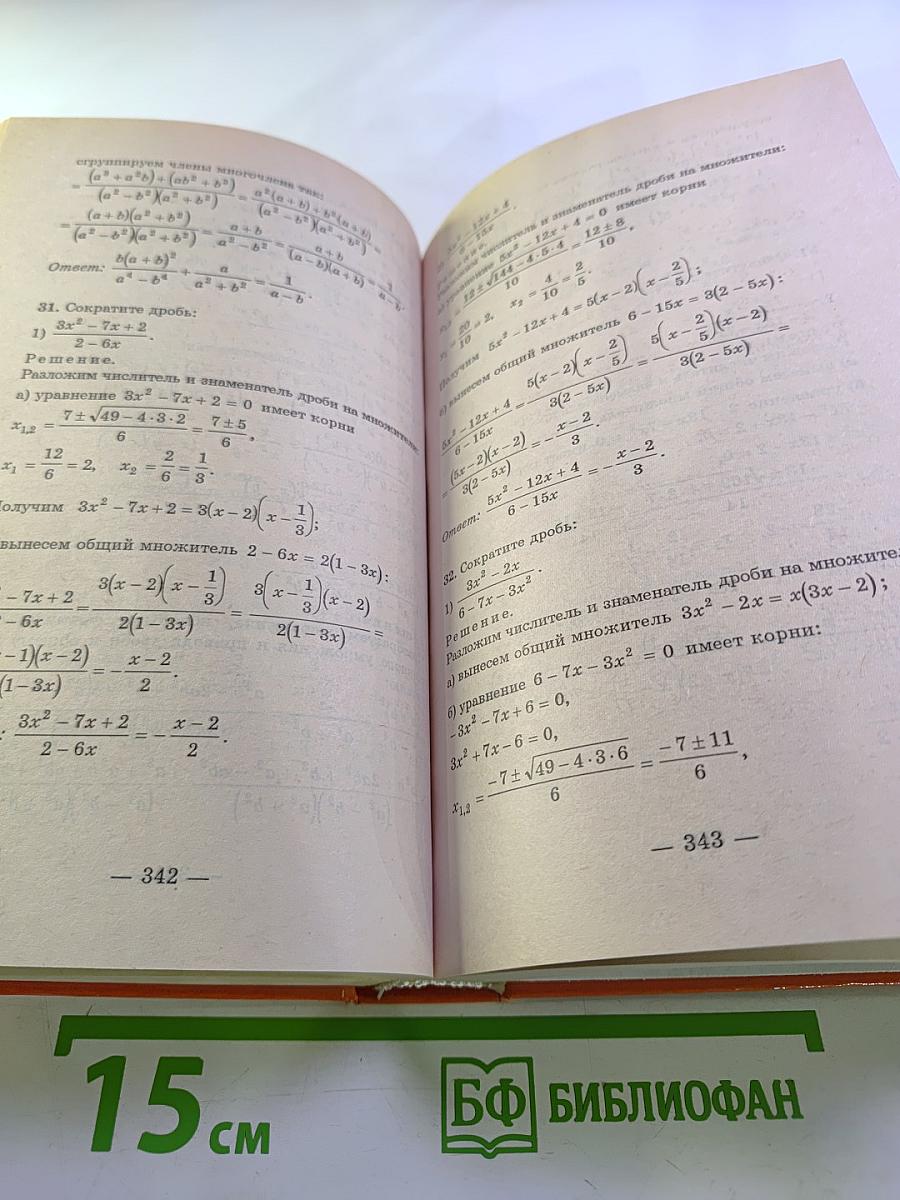 сгруппируем члены многочлена так:
= ((a³ + a²b) + (ab² + b³)) / ((a² − b²)(a² + b²)) = (a²(a + b) + b²(a + b)) / ((a² − b²)(a² + b²)) =
= ((a + b)(a² + b²)) / ((a² − b²)(a² + b²)) = (a + b) / (a² − b²) = (a + b) / ((a − b)(a + b)) = 1 / (a − b).
Ответ: b(a + b)² / (a⁴ − b⁴) + a / (a² + b²) = 1 / (a − b).
31. Сократите дробь:
1) (3x² − 7x + 2) / (2 − 6x).
Решение.
Разложим числитель и знаменатель дроби на множители:
а) уравнение 3x² − 7x + 2 = 0 имеет корни
x₁,₂ = (7 ± √(49 − 4 · 3 · 2)) / 6 = (7 ± 5) / 6,
x₁ = 12/6 = 2, x₂ = 2/6 = 1/3.
Получим 3x² − 7x + 2 = 3(x − 2)(x − 1/3);
вынесем общий множитель 2 − 6x = 2(1 − 3x):
− 7x + 2 / − 6x = 3(x − 2)(x − 1/3) / 2(1 − 3x) = 3(x − 1/3)(x − 2) / 2(1 − 3x) =
− 1)(x − 2) / (1 − 3x) = − (x − 2) / 2.
: (3x² − 7x + 2) / (2 − 6x) = − (x − 2) / 2.
— 342 —
5x² − 12x + 4 / 6 − 15x.
числитель и знаменатель дроби на множители:
уравнение 5x² − 12x + 4 = 0 имеет корни
= (12 ± √(144 − 4 · 5 · 4)) / 10 = (12 ± 8) / 10,
x₁ = 20/10 = 2, x₂ = 4/10 = 2/5.
Получим 5x² − 12x + 4 = 5(x − 2)(x − 2/5);
б) вынесем общий множитель 6 − 15x = 3(2 − 5x):
(5x² − 12x + 4) / (6 − 15x) = 5(x − 2)(x − 2/5) / 3(2 − 5x) = 5(x − 2/5)(x − 2) / 3(2 − 5x) =
= (5x − 2)(x − 2) / 3(2 − 5x) = − (x − 2) / 3.
Ответ: (5x² − 12x + 4) / (6 − 15x) = − (x − 2) / 3.
32. Сократите дробь:
1) (3x² − 2x) / (6 − 7x − 3x²).
Решение.
Разложим числитель и знаменатель дроби на
а) вынесем общий множитель 3x² − 2x = x(3x − 2);
б) уравнение 6 − 7x − 3x² = 0 имеет корни:
−3x² − 7x + 6 = 0,
3x² + 7x − 6 = 0,
x₁,₂ = (−7 ± √(49 − 4 · 3 · 6)) / 6 = (−7 ± 11) / 6,
— 343 —
15 см
БФ БИБЛИОФАН